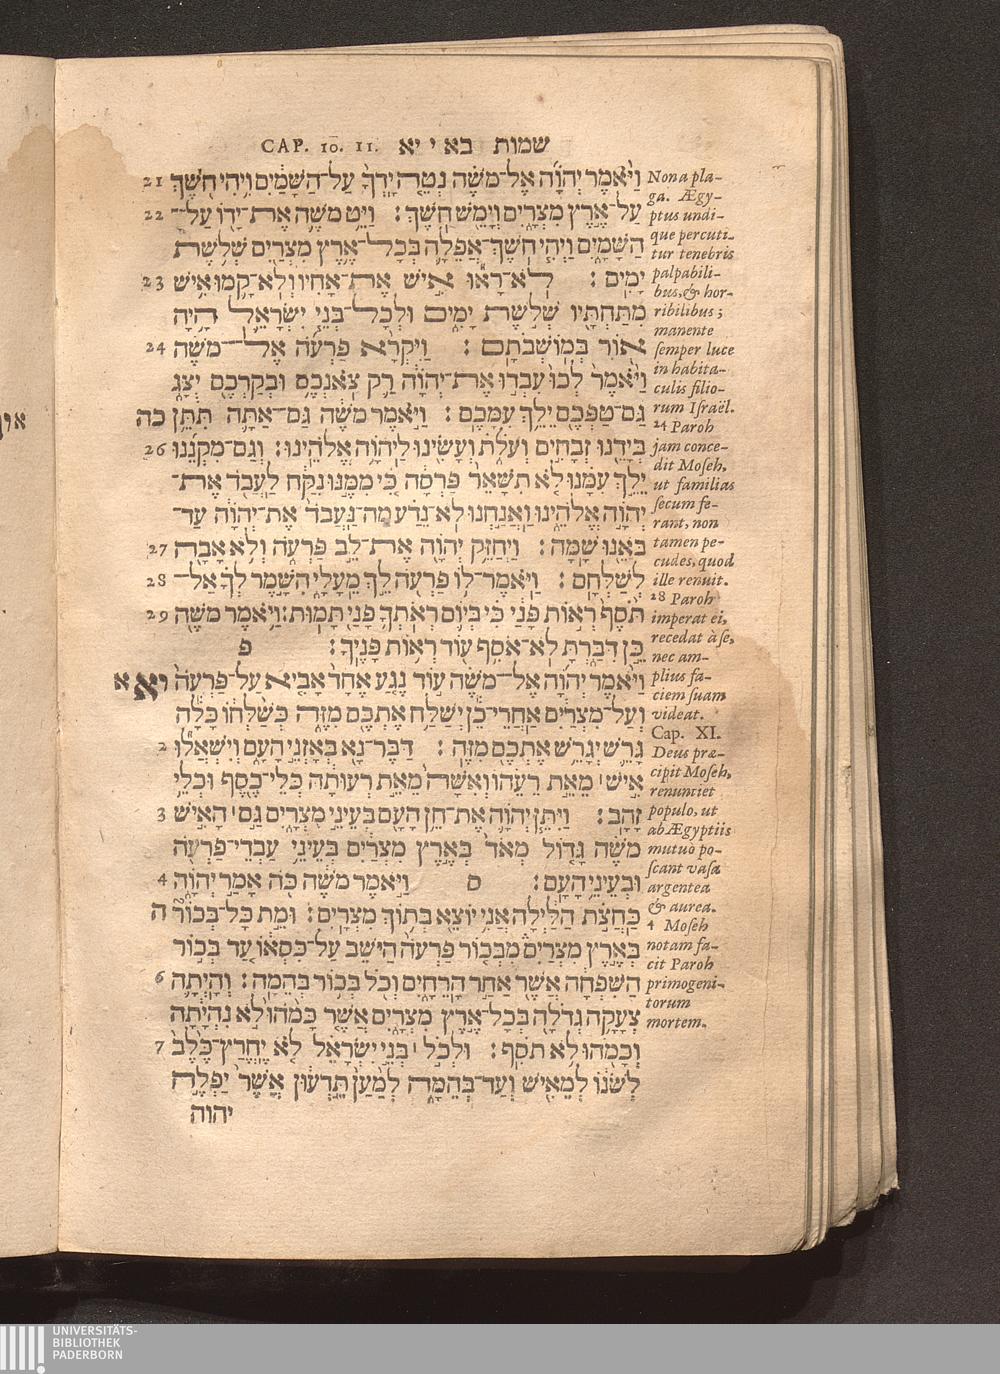 שמות בא י יא CAP. 10. 11.
וַיֹּאמֶר יְהוָה אֶל־משֶׁה נְטֵה יָדְךָ עַל־הַשָּׁמַיִם וִיהִי חֹשֶׁךְ 21
עַל־אֶרֶץ מִצְרָיִם וְיָמֵשׁ חֹשֶׁךְ׃ וַיֵּט משֶׁה אֶת־יָדוֹ עַל־ 22
הַשָּׁמָיִם וַיְהִי חֹשֶׁךְ־אֲפֵלָה בְּכָל־אֶרֶץ מִצְרַיִם שְׁלֹשֶׁת
יָמִים׃ לֹא־רָאוּ אִישׁ אֶת־אָחִיו וְלֹא־קָמוּ אִישׁ 23
מִתַּחְתָּיו שְׁלֹשֶׁת יָמִים וּלְכָל־בְּנֵי יִשְׂרָאֵל הָיָה
אוֹר בְּמוֹשְׁבֹתָם׃ וַיִּקְרָא פַרְעֹה אֶל־משֶׁה 24
וַיֹּאמֶר לְכוּ עִבְדוּ אֶת־יְהוָה רַק צֹאנְכֶם וּבְקַרְכֶם יֻצָּג
גַּם־טַפְּכֶם יֵלֵךְ עִמָּכֶם׃ וַיֹּאמֶר משֶׁה גַּם־אַתָּה תִּתֵּן כה
בְּיָדֵנוּ זְבָחִים וְעֹלֹת וְעָשִׂינוּ לַיהוָה אֱלֹהֵינוּ׃ וְגַם־מִקְנֵנוּ 26
יֵלֵךְ עִמָּנוּ לֹא תִשָּׁאֵר פַּרְסָה כִּי מִמֶּנּוּ נִקַּח לַעֲבֹד אֶת־
יְהוָה אֱלֹהֵינוּ וַאֲנַחְנוּ לֹא־נֵדַע מַה־נַּעֲבֹד אֶת־יְהוָה עַד־
בֹּאֵנוּ שָׁמָּה׃ וַיְחַזֵּק יְהוָה אֶת־לֵב פַּרְעֹה וְלֹא אָבָה 27
לְשַׁלְּחָם׃ וַיֹּאמֶר־לוֹ פַרְעֹה לֵךְ מֵעָלָי הִשָּׁמֶר לְךָ אַל־ 28
תֹּסֶף רְאוֹת פָּנַי כִּי בְּיוֹם רְאֹתְךָ פָנַי תָּמוּת׃ וַיֹּאמֶר משֶׁה 29
כֵּן דִּבַּרְתָּ לֹא־אֹסִף עוֹד רְאוֹת פָּנֶיךָ׃ פ
וַיֹּאמֶר יְהוָה אֶל־משֶׁה עוֹד נֶגַע אֶחָד אָבִיא עַל־פַּרְעֹה יא א
וְעַל־מִצְרַיִם אַחֲרֵי־כֵן יְשַׁלַּח אֶתְכֶם מִזֶּה כְּשַׁלְּחוֹ כָּלָה
גָּרֵשׁ יְגָרֵשׁ אֶתְכֶם מִזֶּה׃ דַּבֶּר־נָא בְּאָזְנֵי הָעָם וְיִשְׁאֲלוּ 2
אִישׁ מֵאֵת רֵעֵהוּ וְאִשָּׁה מֵאֵת רְעוּתָהּ כְּלֵי־כֶסֶף וּכְלֵי
זָהָב׃ וַיִּתֵּן יְהוָה אֶת־חֵן הָעָם בְּעֵינֵי מִצְרָיִם גַּם הָאִישׁ 3
משֶׁה גָּדוֹל מְאֹד בְּאֶרֶץ מִצְרַיִם בְּעֵינֵי עַבְדֵי־פַרְעֹה
וּבְעֵינֵי הָעָם׃ ס וַיֹּאמֶר משֶׁה כֹּה אָמַר יְהוָה 4
כַּחֲצֹת הַלַּיְלָה אֲנִי יוֹצֵא בְּתוֹךְ מִצְרָיִם׃ וּמֵת כָּל־בְּכוֹר ה
בְּאֶרֶץ מִצְרַיִם מִבְּכוֹר פַּרְעֹה הַיֹּשֵׁב עַל־כִּסְאוֹ עַד בְּכוֹר
הַשִּׁפְחָה אֲשֶׁר אַחַר הָרֵחָיִם וְכֹל בְּכוֹר בְּהֵמָה׃ וְהָיְתָה 6
צְעָקָה גְדֹלָה בְּכָל־אֶרֶץ מִצְרָיִם אֲשֶׁר כָּמֹהוּ לֹא נִהְיָתָה
וְכָמֹהוּ לֹא תֹסִף׃ וּלְכֹל בְּנֵי יִשְׂרָאֵל לֹא יֶחֱרַץ־כֶּלֶב 7
לְשֹׁנוֹ לְמֵאִישׁ וְעַד־בְּהֵמָה לְמַעַן תֵּדְעוּן אֲשֶׁר יַפְלֶה
יהוה
Nona pla-
ga. Ægy-
ptus undi-
que percuti-
tur tenebris
palpabili-
bus, & hor-
ribilibus;
manente
semper luce
in habita-
culis filio-
rum Israël.
24 Paroh
jam conce-
dit Moseh,
ut familias
secum fe-
rant, non
tamen pe-
cudes, quod
ille renuit.
28 Paroh
imperat ei,
recedat à se,
nec am-
plius fa-
ciem suam
videat.
Cap. XI.
Deus præ-
cipit Moseh,
renuntiet
populo, ut
ab Ægyptiis
mutuo po-
scant vasa
argentea
& aurea.
4 Moseh
notam fa-
cit Paroh
primogeni-
torum
mortem.
UNIVERSITÄTS-
BIBLIOTHEK
PADERBORN